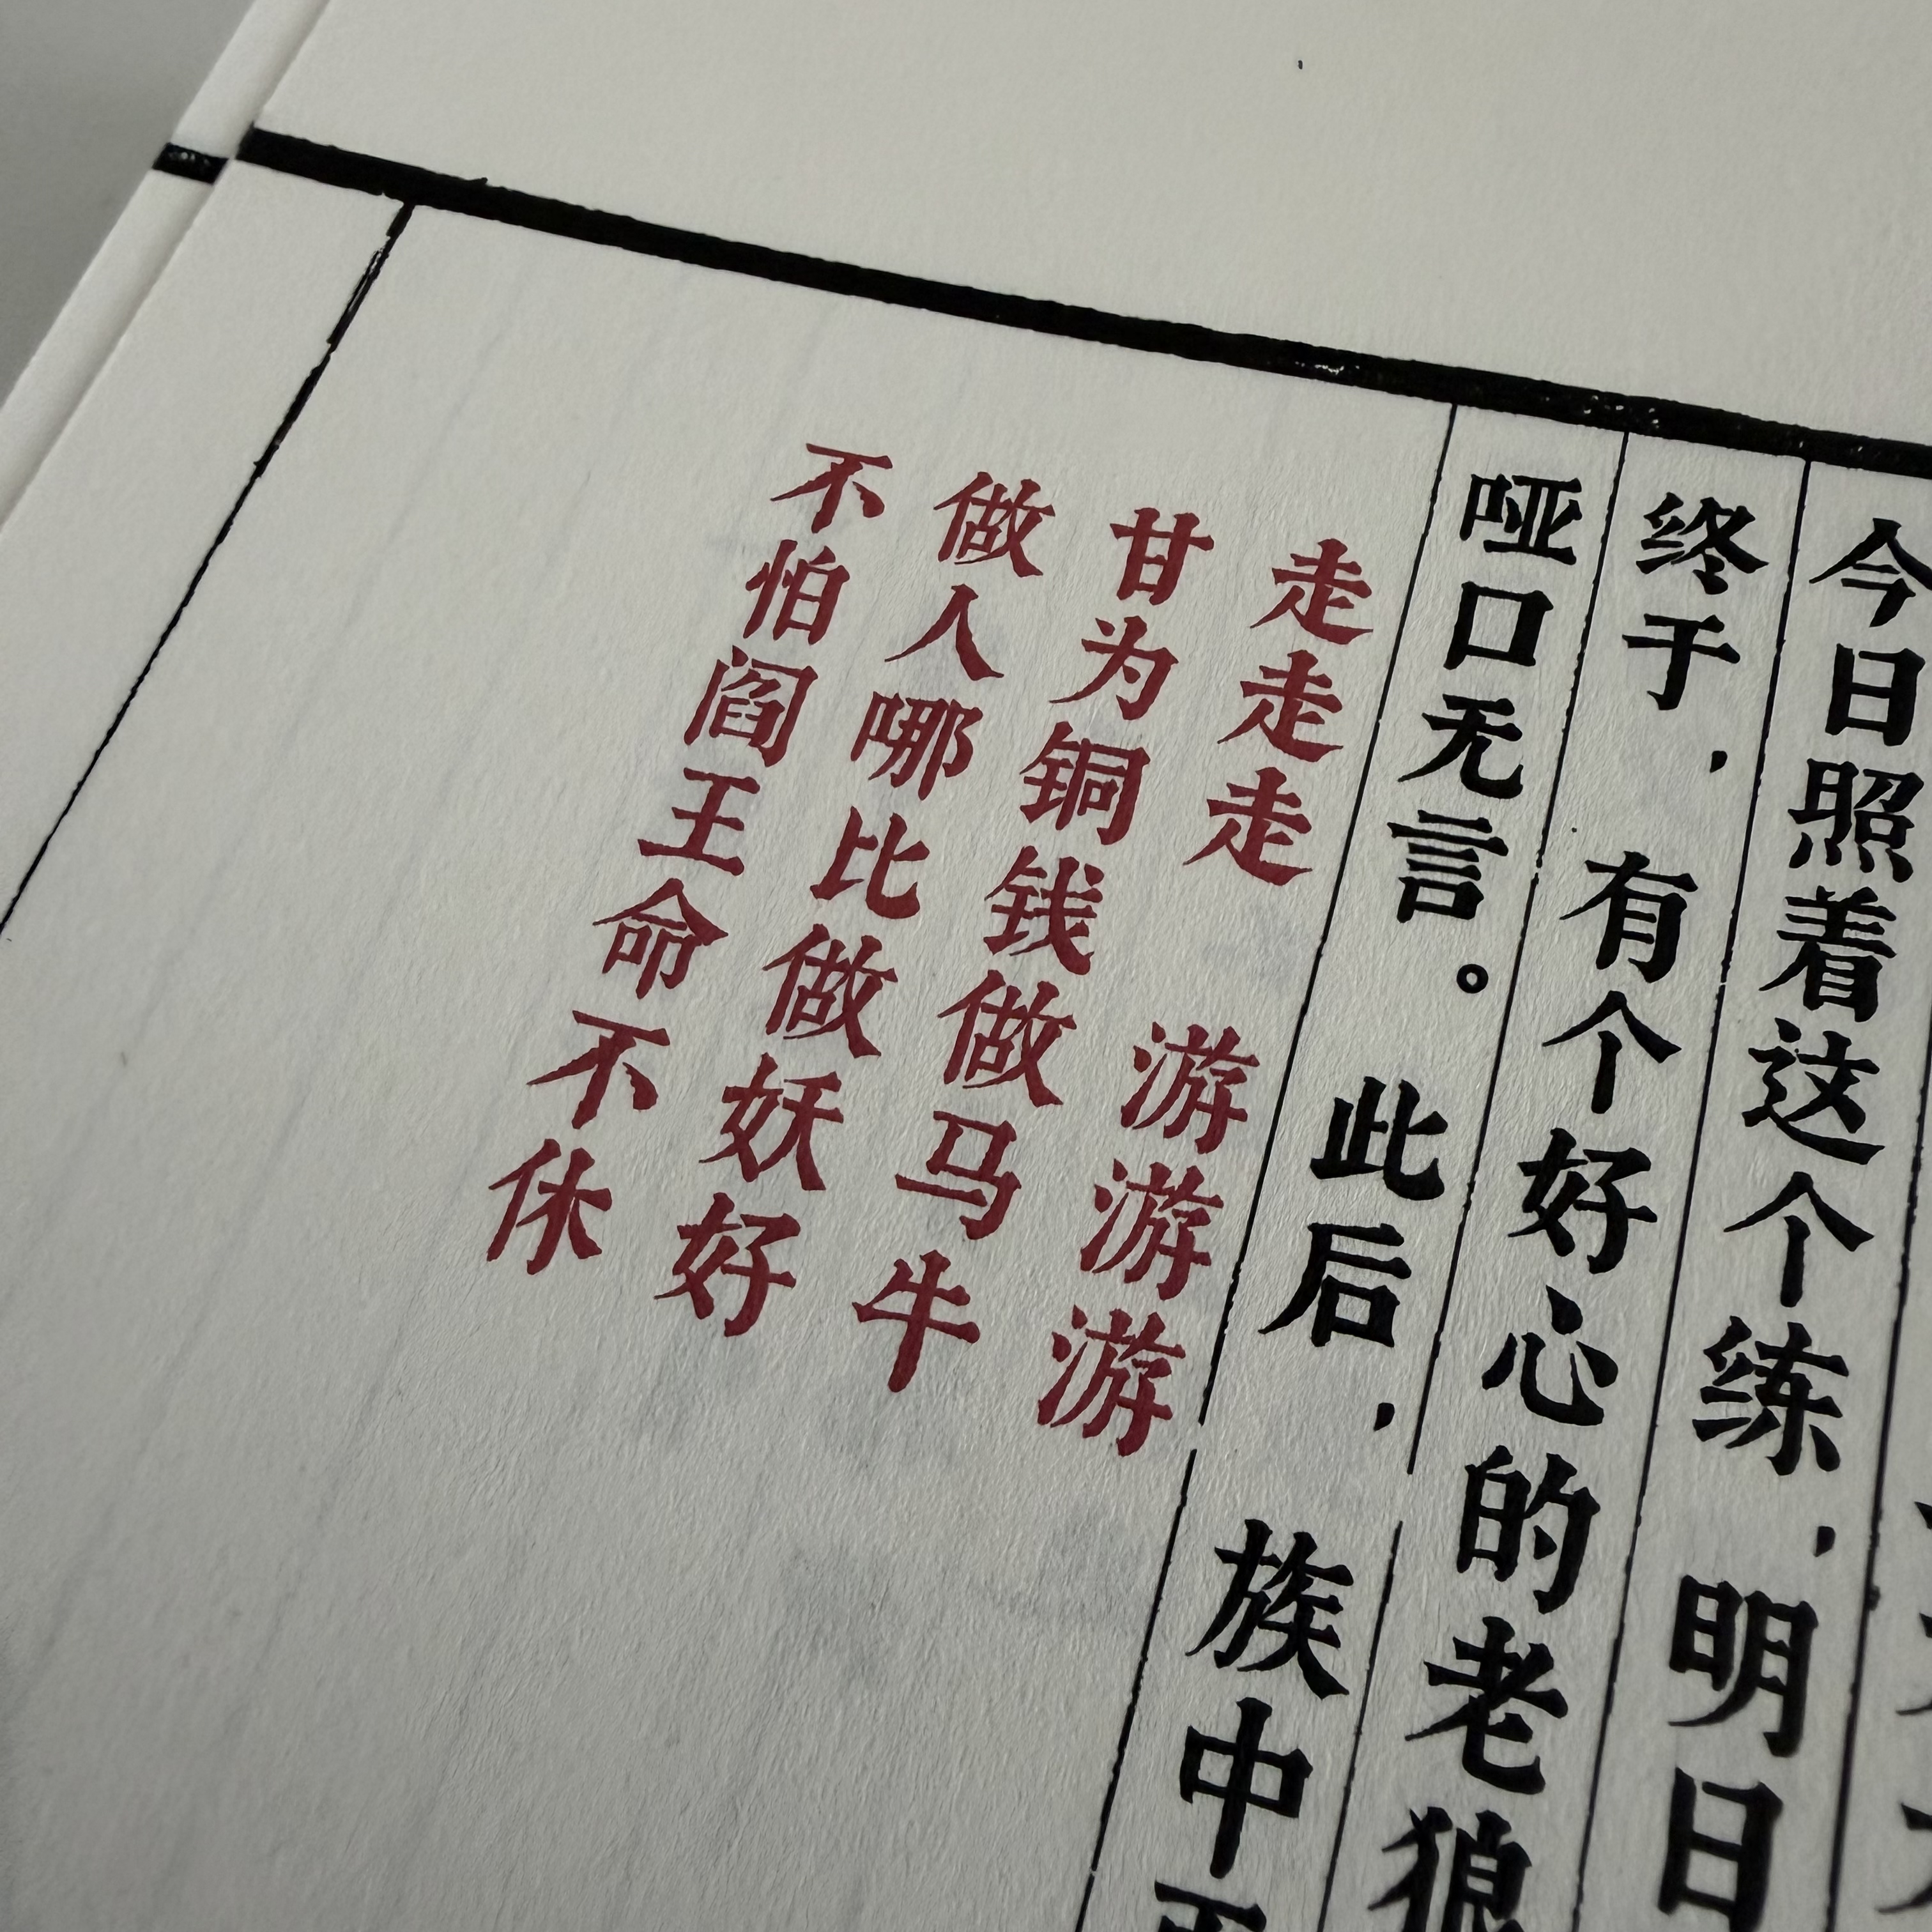 今日照着这个练，明日
终于，有个好心的老狼
哑口无言。此后，族中
走走走 游游游
甘为铜钱做马牛
做人哪比做妖好
不怕阎王命不休